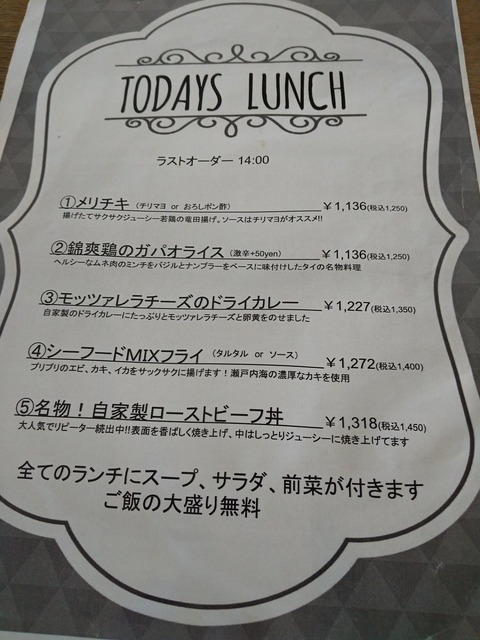 TODAYS LUNCH
ラストオーダー 14:00
①メリチキ （チリマヨ or おろしポン酢） ￥1,136(税込1,250)
揚げたてサクサクジューシー若鶏の竜田揚げ。ソースはチリマヨがオススメ!!
②錦爽鶏のガパオライス （激辛+50yen） ￥1,136(税込1,250)
ヘルシーなムネ肉のミンチをバジルとナンプラーをベースに味付けしたタイの名物料理
③モッツァレラチーズのドライカレー ￥1,227(税込1,350)
自家製のドライカレーにたっぷりとモッツァレラチーズと卵黄をのせました
④シーフードMIXフライ （タルタル or ソース） ￥1,272(税込1,400)
プリプリのエビ、カキ、イカをサックサクに揚げます！瀬戸内海の濃厚なカキを使用
⑤名物！自家製ローストビーフ丼 ￥1,318(税込1,450)
大人気でリピーター続出中!!表面を香ばしく焼き上げ、中はしっとりジューシーに焼き上げてます
全てのランチにスープ、サラダ、前菜が付きます
ご飯の大盛り無料